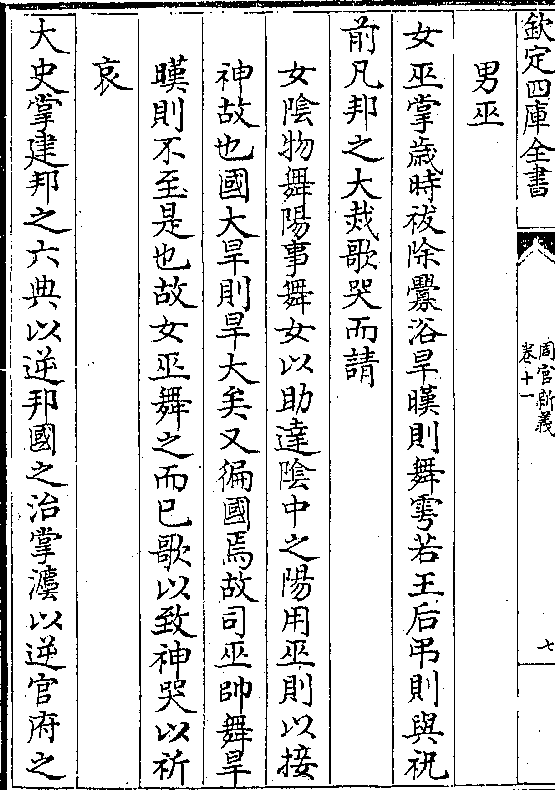 欽定四庫全書
周官新義
卷十一
七
男巫
女巫掌歲時祓除釁浴旱暵則舞雩若王后弔則與祝
前凡邦之大烖歌哭而請
女陰物舞陽事舞女以助達陰中之陽用巫則以接
神故也國大旱則旱大矣又徧國焉故司巫帥舞旱
暵則不至是也故女巫舞之而已歌以致神哭以祈
哀
大史掌建邦之六典以逆邦國之治掌灋以逆官府之